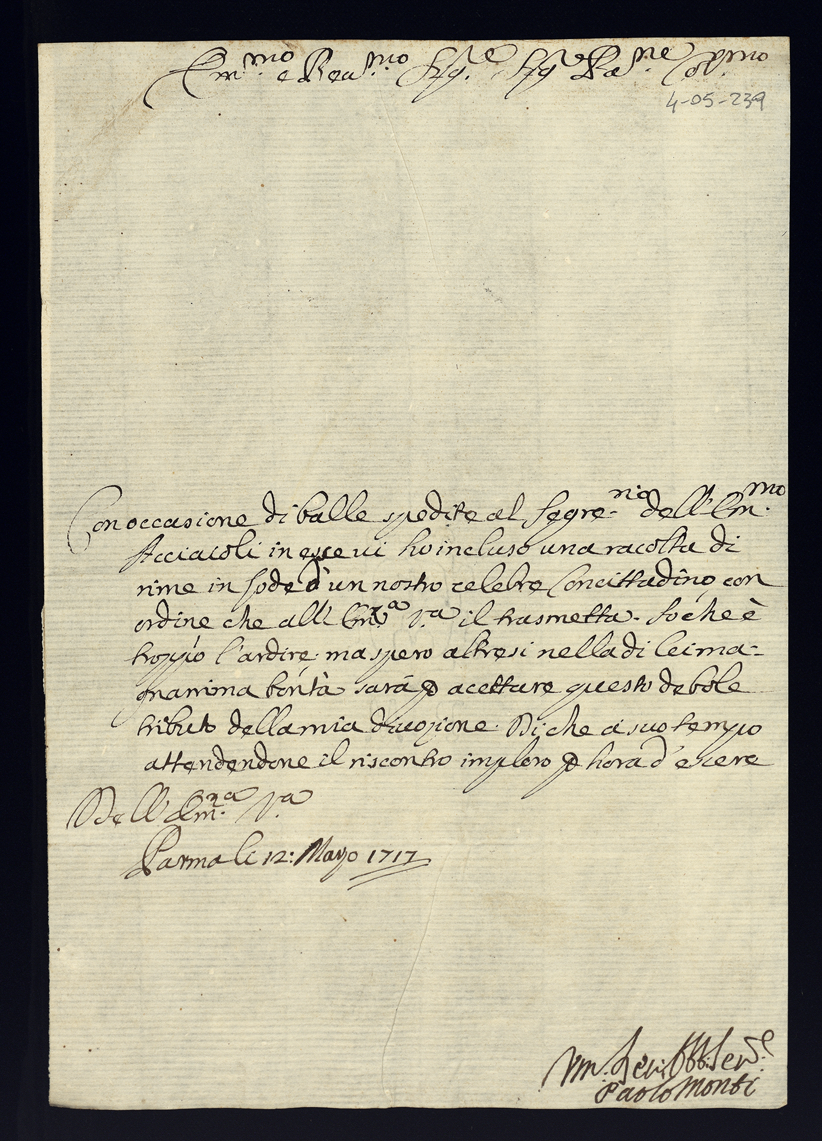 Em.mo e Rea.mo Sig.e Sig.e Pa.ne Col.mo
4-05-239
Con occasione di balle spedite al Segre.rio dell'Em.mo
Acciaioli in esse vi ho incluso una racolta di
rime in lode d'un nostro celebre Concittadino, con
ordine che all'Em.a V.a il trasmetta. So che è
troppo l'ardire. ma spero altresi nella di lei ma=
gnanima bontà sarà p acettare questo debole
tributo della mia divozione. Di che a suo tempo
attendendone il riscontro imploro p hora d'essere
Dell'Em.za V.a
Parma li 12: Marzo 1717
Um. Dev. Obb. Ser.e
Paolo Monti